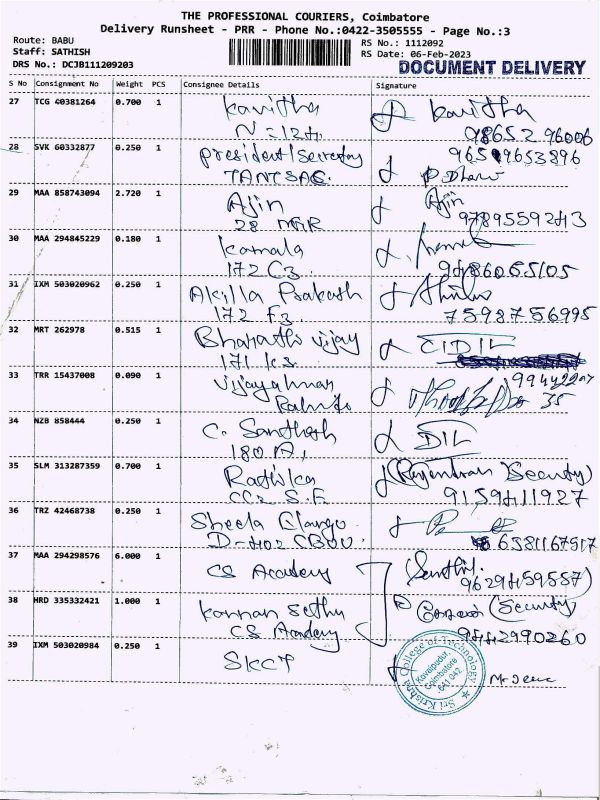 THE PROFESSIONAL COURIERS, Coimbatore
Delivery Runsheet - PRR - Phone No.:0422-3505555 - Page No.:3
Route: BABU
Staff: SATHISH
DRS No.: DCJB111209203
RS No.: 1112092
RS Date: 06-Feb-2023
DOCUMENT DELIVERY
S No Consignment No Weight PCS Consignee Details Signature
27 TCG 40381264 0.700 1 Kavitha Kavitha
98652 96006
28 SVK 60332877 0.250 1 president/secretary
TANCSAC.
29 MAA 858743094 2.720 1 Ajin Ajin
28 MGR 9789559243
30 MAA 294845229 0.180 1 Kamala
172 C3. 9486065105
31 IXM 503020962 0.250 1 Akilla Prakash
172 F3 7598756995
32 MRT 262978 0.515 1 Bharathi Vijay CIDIL
171 K3
33 TRR 15437008 0.090 1 Vijayalumar
34 NZB 858444 0.250 1 C. Santhosh DIL
180 A1
35 SLM 313287359 0.700 1 Radhika (Rajendran Security)
CC2 S.F 9159411927
36 TRZ 42468738 0.250 1 Sheela Elango
D-402 CBOU 6581167517
37 MAA 294298576 6.000 1 CS Academy (Santhi.
9629459587)
38 HRD 335332421 1.000 1 Kannan Sethu (Security
CS Academy 9442990260
39 IXM 503020984 0.250 1 SKCT
Sri Krishna College of Technology
Kovaipudur,
Coimbatore
641 042